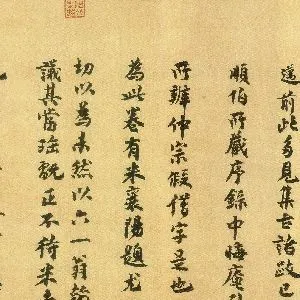 遂前此多見集古諸跋已
順伯所藏序錄中悔庵
所辯仲宗假借字是也
為此卷有米襄陽題尤
切以為未然以六一翁
議其當註既正不待米